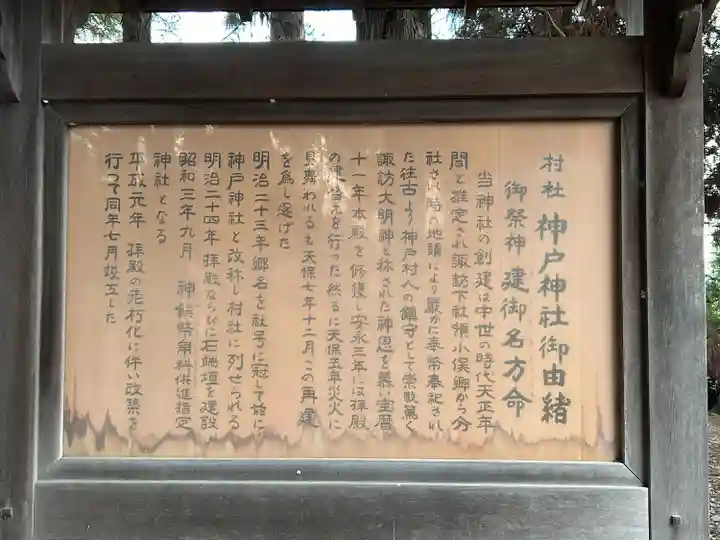 村社 神戸神社御由緒
御祭神 建御名方命
当神社の創建は中世の時代天正年
間と推定され諏訪下社領小俣郷から分
社され時の地頭により厳かに奉幣奉祀され
た往古より神戸村人の鎮守として崇敬篤く
諏訪大明神と称された神恩を慕い宝暦
十一年本殿を修復し安永三年には拝殿
の建当えを行った然るに天保五年災火に
見舞われるも天保七年十二月この再建
を為し遂げた
明治二十三年郷名を社号に冠して茲に
神戸神社と改称し村社に列せられる
明治二十四年拝殿ならびに石端垣を建設
昭和三年九月 神饌幣帛料供進指定
神社となる
平成元年 拝殿の老朽化に伴い改築を
行って同年七月竣工した